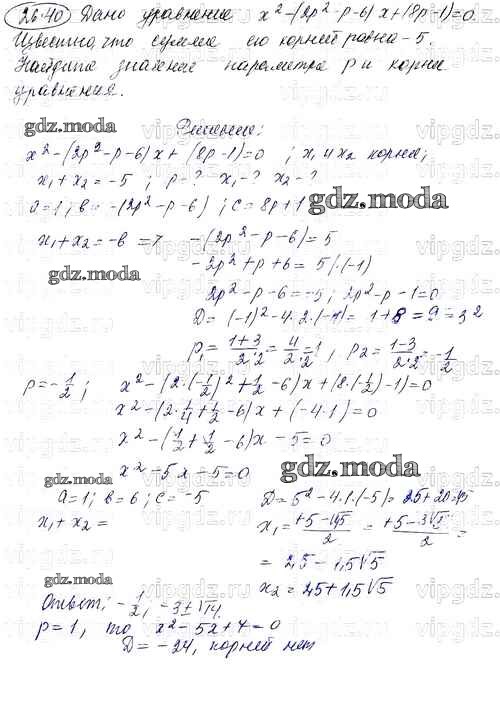 26.40 Дано уравнение x²-(2p²-p-6)x+(8p-1)=0.
Известно, что сумма его корней равна -5.
Найдите значение параметра p и корни
уравнения.
gdz.moda
Решение:
x²-(2p²-p-6)x+(8p-1)=0 ; x₁ и x₂ корни;
x₁+x₂=-5 ; p=? x₁-? x₂-?
gdz.moda
a=1; b=-(2p²-p-6) ; c=8p+1
x₁+x₂=-b => -(2p²-p-6)=5
gdz.moda
-2p²+p+6=5 |·(-1)
2p²-p-6=-5 ; 2p²-p-1=0
D=(-1)²-4·2·(-1)=1+8=9=3²
p₁=\frac{1+3}{2·2}=\frac{4}{2·2}=1 , p₂=\frac{1-3}{2·2}=-\frac{1}{2}
p=-\frac{1}{2} ; x²-(2·(-\frac{1}{2})²+\frac{1}{2}-6)x+(8·(-\frac{1}{2})-1)=0
x²-(2·\frac{1}{4}+\frac{1}{2}-6)x+(-4·1)=0
x²-(\frac{1}{2}+\frac{1}{2}-6)x-5=0
x²-5x-5=0
gdz.moda
gdz.moda
a=1; b=6; c=-5 D=5²-4·1·(-5)=25+20=45
x₁+x₂= x₁=\frac{+5-\sqrt{45}}{2}=\frac{+5-3\sqrt{5}}{2}=
=2,5-1,5√5
gdz.moda
x₂=2,5+1,5√5
Ответ: -\frac{1}{2}, -3±√14.
p=1, то x²-5x+7=0
D=-24, корней нет
gdz.moda
vipgdz.ru